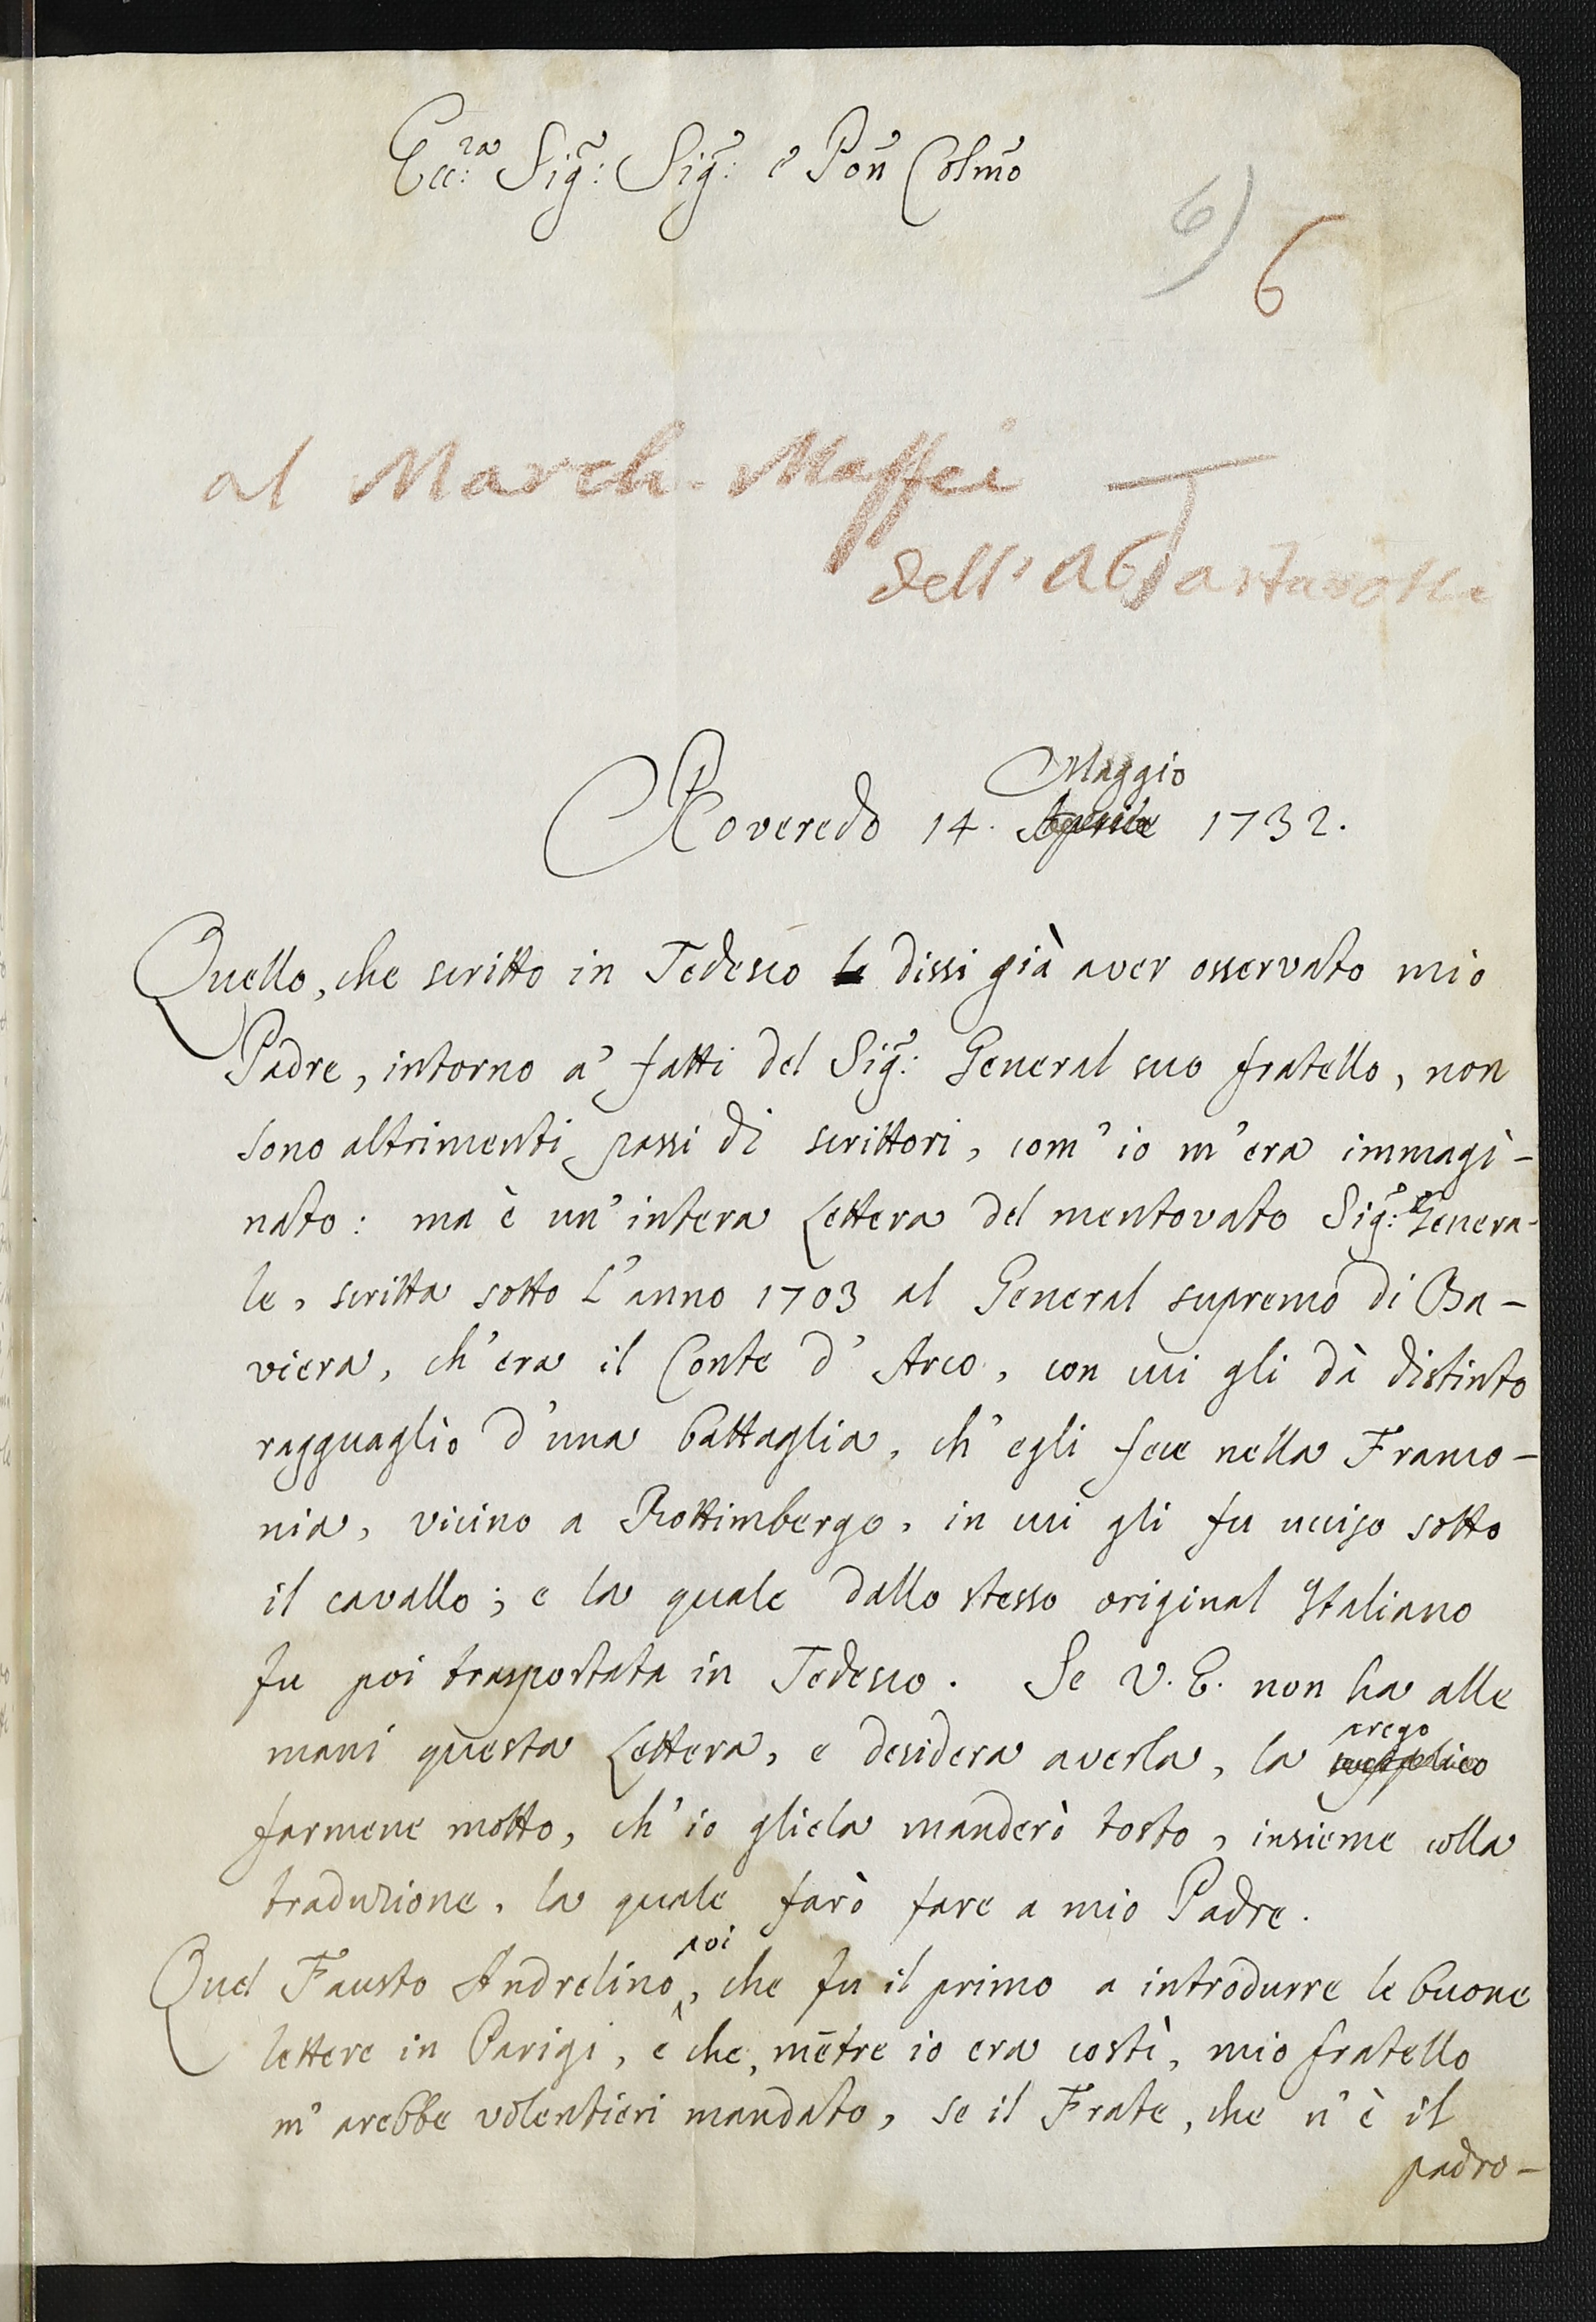 Ecc:ra Sig:r Sig:r e Pon Colmo
6)
6
al March. Maffei
dell' Ab Tartarotti
Roveredo 14. Aprile Maggio 1732.
Quello, che scritto in Tedesco le dissi già aver osservato mio
Padre, intorno a' fatti del Sig:r General suo fratello, non
sono altrimenti passi di scrittori, com' io m' era immagi-
nato: ma è un' intera Lettera del mentovato Sig:r Genera-
le, scritta sotto l' anno 1703 al General supremo di Ba-
viera, ch' era il Conte d' Arco, con cui gli dà distinto
ragguaglio d' una battaglia, ch' egli fece nella Franco-
nia, vicino a Rottimbergo, in cui gli fu ucciso sotto
il cavallo; e la quale dallo stesso original Italiano
fu poi trasportata in Tedesco. Se V. E. non ha alle
mani questa Lettera, e desidera averla, la supplico prego
farmene motto, ch' io gliela manderò tosto, insieme colla
traduzione, la quale farò fare a mio Padre.
Quel Fausto Andrelino poi, che fu il primo a introdurre le buone
lettere in Parigi, e che, mētre io era costì, mio fratello
m' arebbe volentieri mandato, se il Frate, che n' è il
padro-